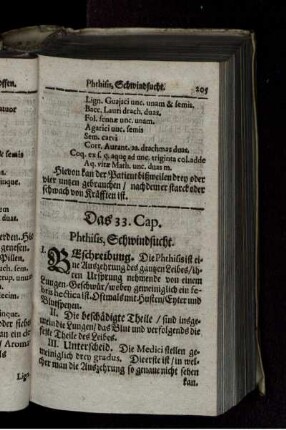 Phthisis, Schwindsucht. 205
Lign. Guajaci unc. unam & semis.
Bacc. Lauri drach. duas.
Fol. sennæ unc. unam.
Agarici unc. semis
Sem. carvi
Cort. Aurant. aa. drachmas duas.
Coq. ex s. q. aquæ ad unc. triginta col. adde
Aq. vitæ Math. unc. duas m.
Hievon kan der Patient bißweilen drey oder
vier untzen gebrauchen / nachdem er starck oder
schwach von Kräfften ist.
Das 33. Cap.
Phthisis, Schwindsucht.
I. BEschreibung. Die Phthisis ist ei-
ne Außzehrung des gantzen Leibes / ih-
ren Ursprung nehmende von einem
Lungen-Geschwür / wobey gemeiniglich ein fe-
bris hectica ist. Oftmals mit Husten / Eyter und
Blutspeyen.
II. Die beschädigte Theile / sind insge-
mein die Lungen / das Blut und verfolgends die
feste Theile des Leibes.
III. Unterscheid. Die Medici stellen ge-
meiniglich drey gradus. Die erste ist / in wel-
cher man die Außzehrung so genau nicht sehen
kan.